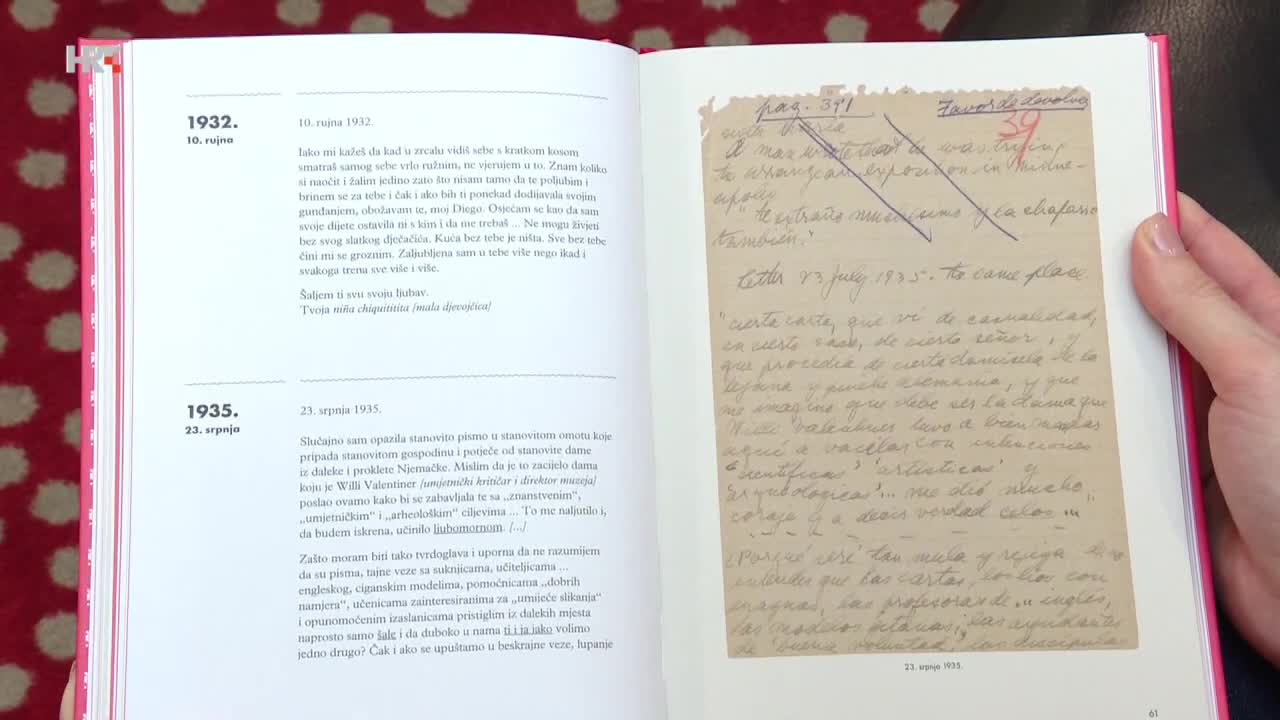 HRT
1932.
10. rujna
10. rujna 1932.
Iako mi kažeš da kad u zrcalu vidiš sebe s kratkom kosom
smatraš samog sebe vrlo ružnim, ne vjerujem u to. Znam koliko
si naočit i žalim jedino zato što nisam tamo da te poljubim i
brinem se za tebe i čak i ako bih ti ponekad dodijavala svojim
gunđanjem, obožavam te, moj Diego. Osjećam se kao da sam
svoje dijete ostavila ni s kim i da me trebaš ... Ne mogu živjeti
bez svog slatkog dječačića. Kuća bez tebe je ništa. Sve bez tebe
čini mi se groznim. Zaljubljena sam u tebe više nego ikad i
svakoga trena sve više i više.
Šaljem ti svu svoju ljubav.
Tvoja niña chiquititita [mala djevojčica]
1935.
23. srpnja
23. srpnja 1935.
Slučajno sam opazila stanovito pismo u stanovitom omotu koje
pripada stanovitom gospodinu i potječe od stanovite dame
iz daleke i proklete Njemačke. Mislim da je to zacijelo dama
koju je Willi Valentiner [umjetnički kritičar i direktor muzeja]
poslao ovamo kako bi se zabavljala te sa „znanstvenim“,
„umjetničkim“ i „arheološkim“ ciljevima ... To me naljutilo i,
da budem iskrena, učinilo ljubomornom. [...]
Zašto moram biti tako tvrdoglava i uporna da ne razumijem
da su pisma, tajne veze sa suknjicama, učiteljicama ...
engleskog, ciganskim modelima, pomoćnicama „dobrih
namjera“, učenicama zainteresiranima za „umijeće slikanja“
i opunomoćenim izaslanicama pristiglim iz dalekih mjesta
naprosto samo šale i da duboko u nama ti i ja jako volimo
jedno drugo? Čak i ako se upuštamo u beskrajne veze, lupanje
pag. 391
Favor de devolver
39
A man wrote that he was trying
to arrange an exposition in Minne-
apolis
"te extraño muchísimo y la chaparrita
también."
Letter 23 July 1935. the same place
"cierta carta, que vi de casualidad,
en cierto saco, de cierto señor, y
que procedía de cierta damisela de la
lejana y pinche Alemania, y que
me imagino que debe ser la dama que
Willi Valentiner tuvo a bien mandar
aquí a vacilar con intenciones
"científicas" "artísticas" y
"arqueológicas"... me dió mucho
coraje y a decir verdad celos...
¿Porqué seré tan mula y rejega de no
entender que las cartas, los líos con
enaguas, las profesoras de... inglés,
las modelos gitanas, las ayudantes
de "buena voluntad", las discípulas
23. srpnja 1935.
61